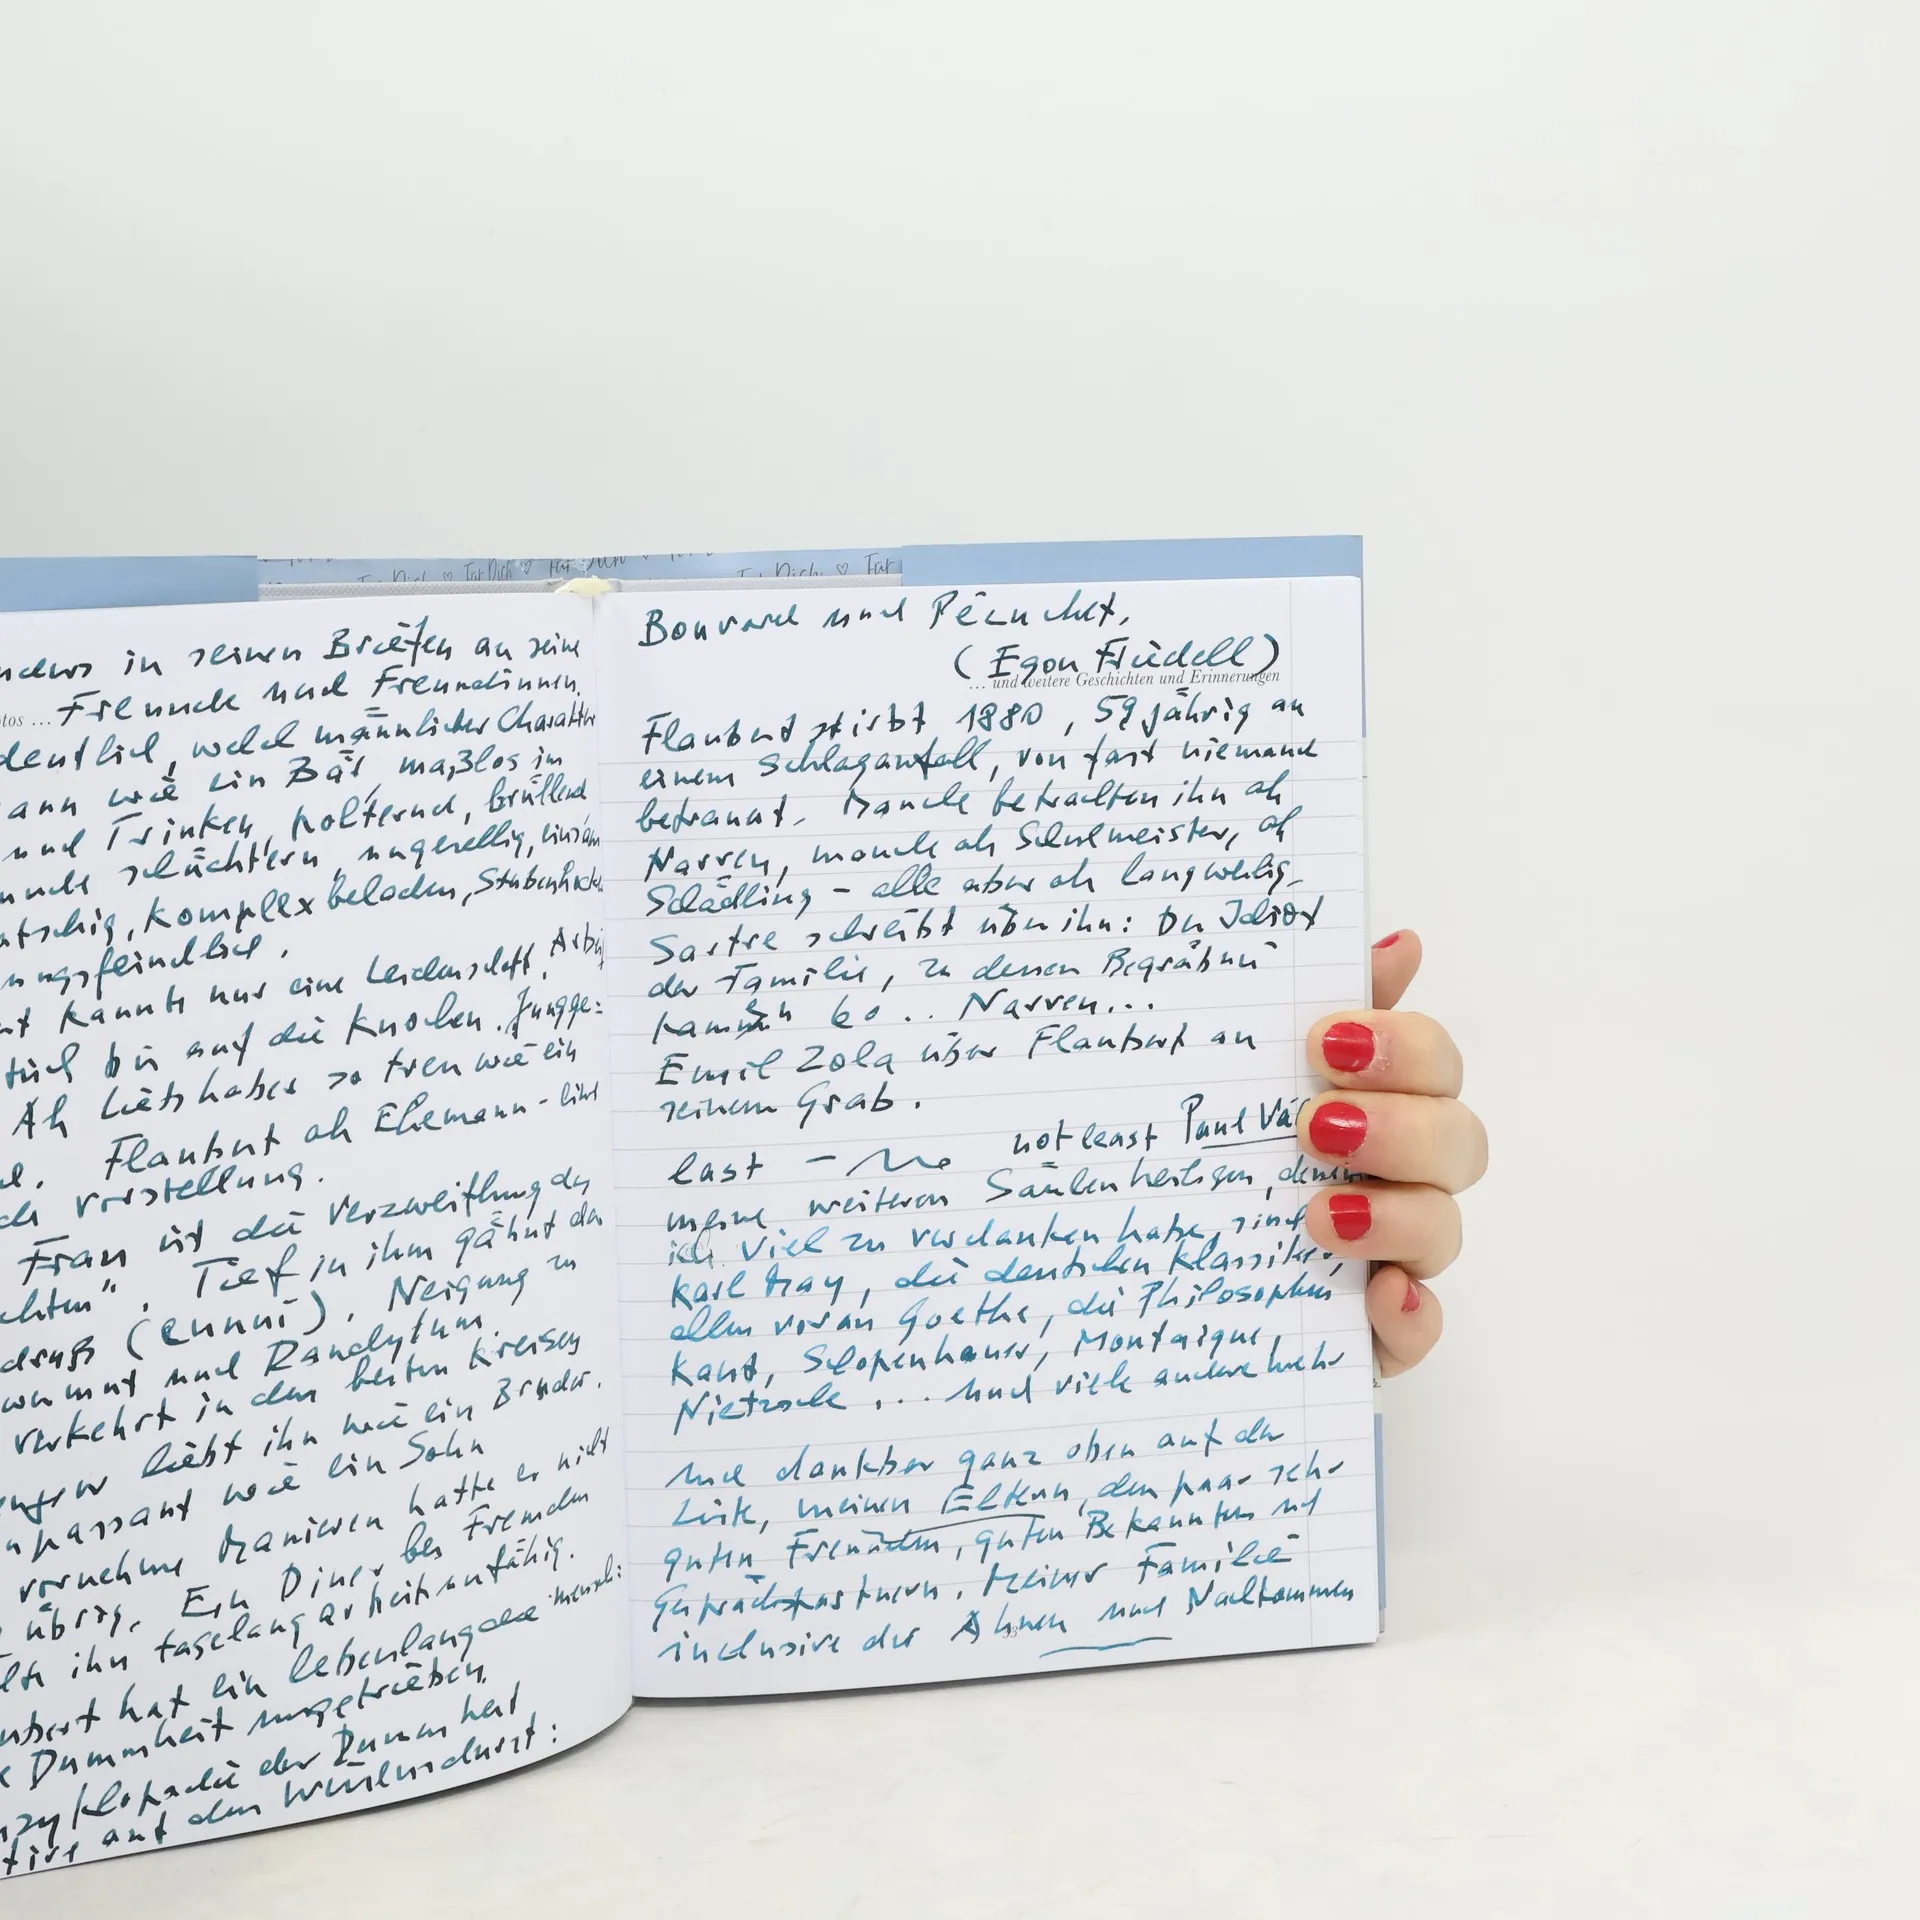 Für Dich ♡ Für Dich ♡
Für Dich ♡ Für
in seinen Briefen an seine
Freunde und Freundinnen.
welch männlicher Charakter
wie ein Bär, maßlos im
und Trinken, polternd, brüllend
schüchtern, ungesellig, einsam
komplexbeladen, Stubenhocker
kannte nur eine Leidenschaft, Arbeit
bis auf die Knochen. Jungge=
Als Liebhaber so treu wie ein
Flaubert als Ehemann -
Vorstellung.
Frau ist die Verzweiflung des
". Tief in ihm gähnt der
(ennui). Neigung zu
und Dandytum
verkehrt in den besten Kreisen
liebt ihn wie ein Bruder.
wie ein Sohn
vornehme Manieren hatte er nicht
übrig. Ein Diner bei Fremden
ihn tagelang arbeitsunfähig.
hat ein lebenlang die menschli:
Dummheit umgetrieben
der Dummheit
auf den Wissensdurst:
Bouvard und Pécuchet,
(Egon Friedell)
... und weitere Geschichten und Erinnerungen
Flaubert stirbt 1880, 59jährig an
einem Schlaganfall, von fast niemand
betrauert. Manche betrachten ihn als
Narren, manche als Schulmeister, als
Schädling - alle aber als langweilig.
Sartre schreibt über ihn: Der Idiot
der Familie, zu dessen Begräbnis
kamen 60 .. Narren...
Emil Zola über Flaubert an
seinem Grab.
last - not least Paul Val
meine weiteren Säulenheiligen, denen
ich viel zu verdanken habe, sind
Karl May, die deutschen Klassiker,
allen voran Goethe, die Philosophen
Kant, Schopenhauer, Montaigne,
Nietzsche ... und viele andere mehr
und dankbar ganz oben auf der
Liste, meinen Eltern, den paar sehr
guten Freunden, guten Bekannten und
Gesprächspartnern, meiner Familie
inclusive der Ahnen und Nachkommen